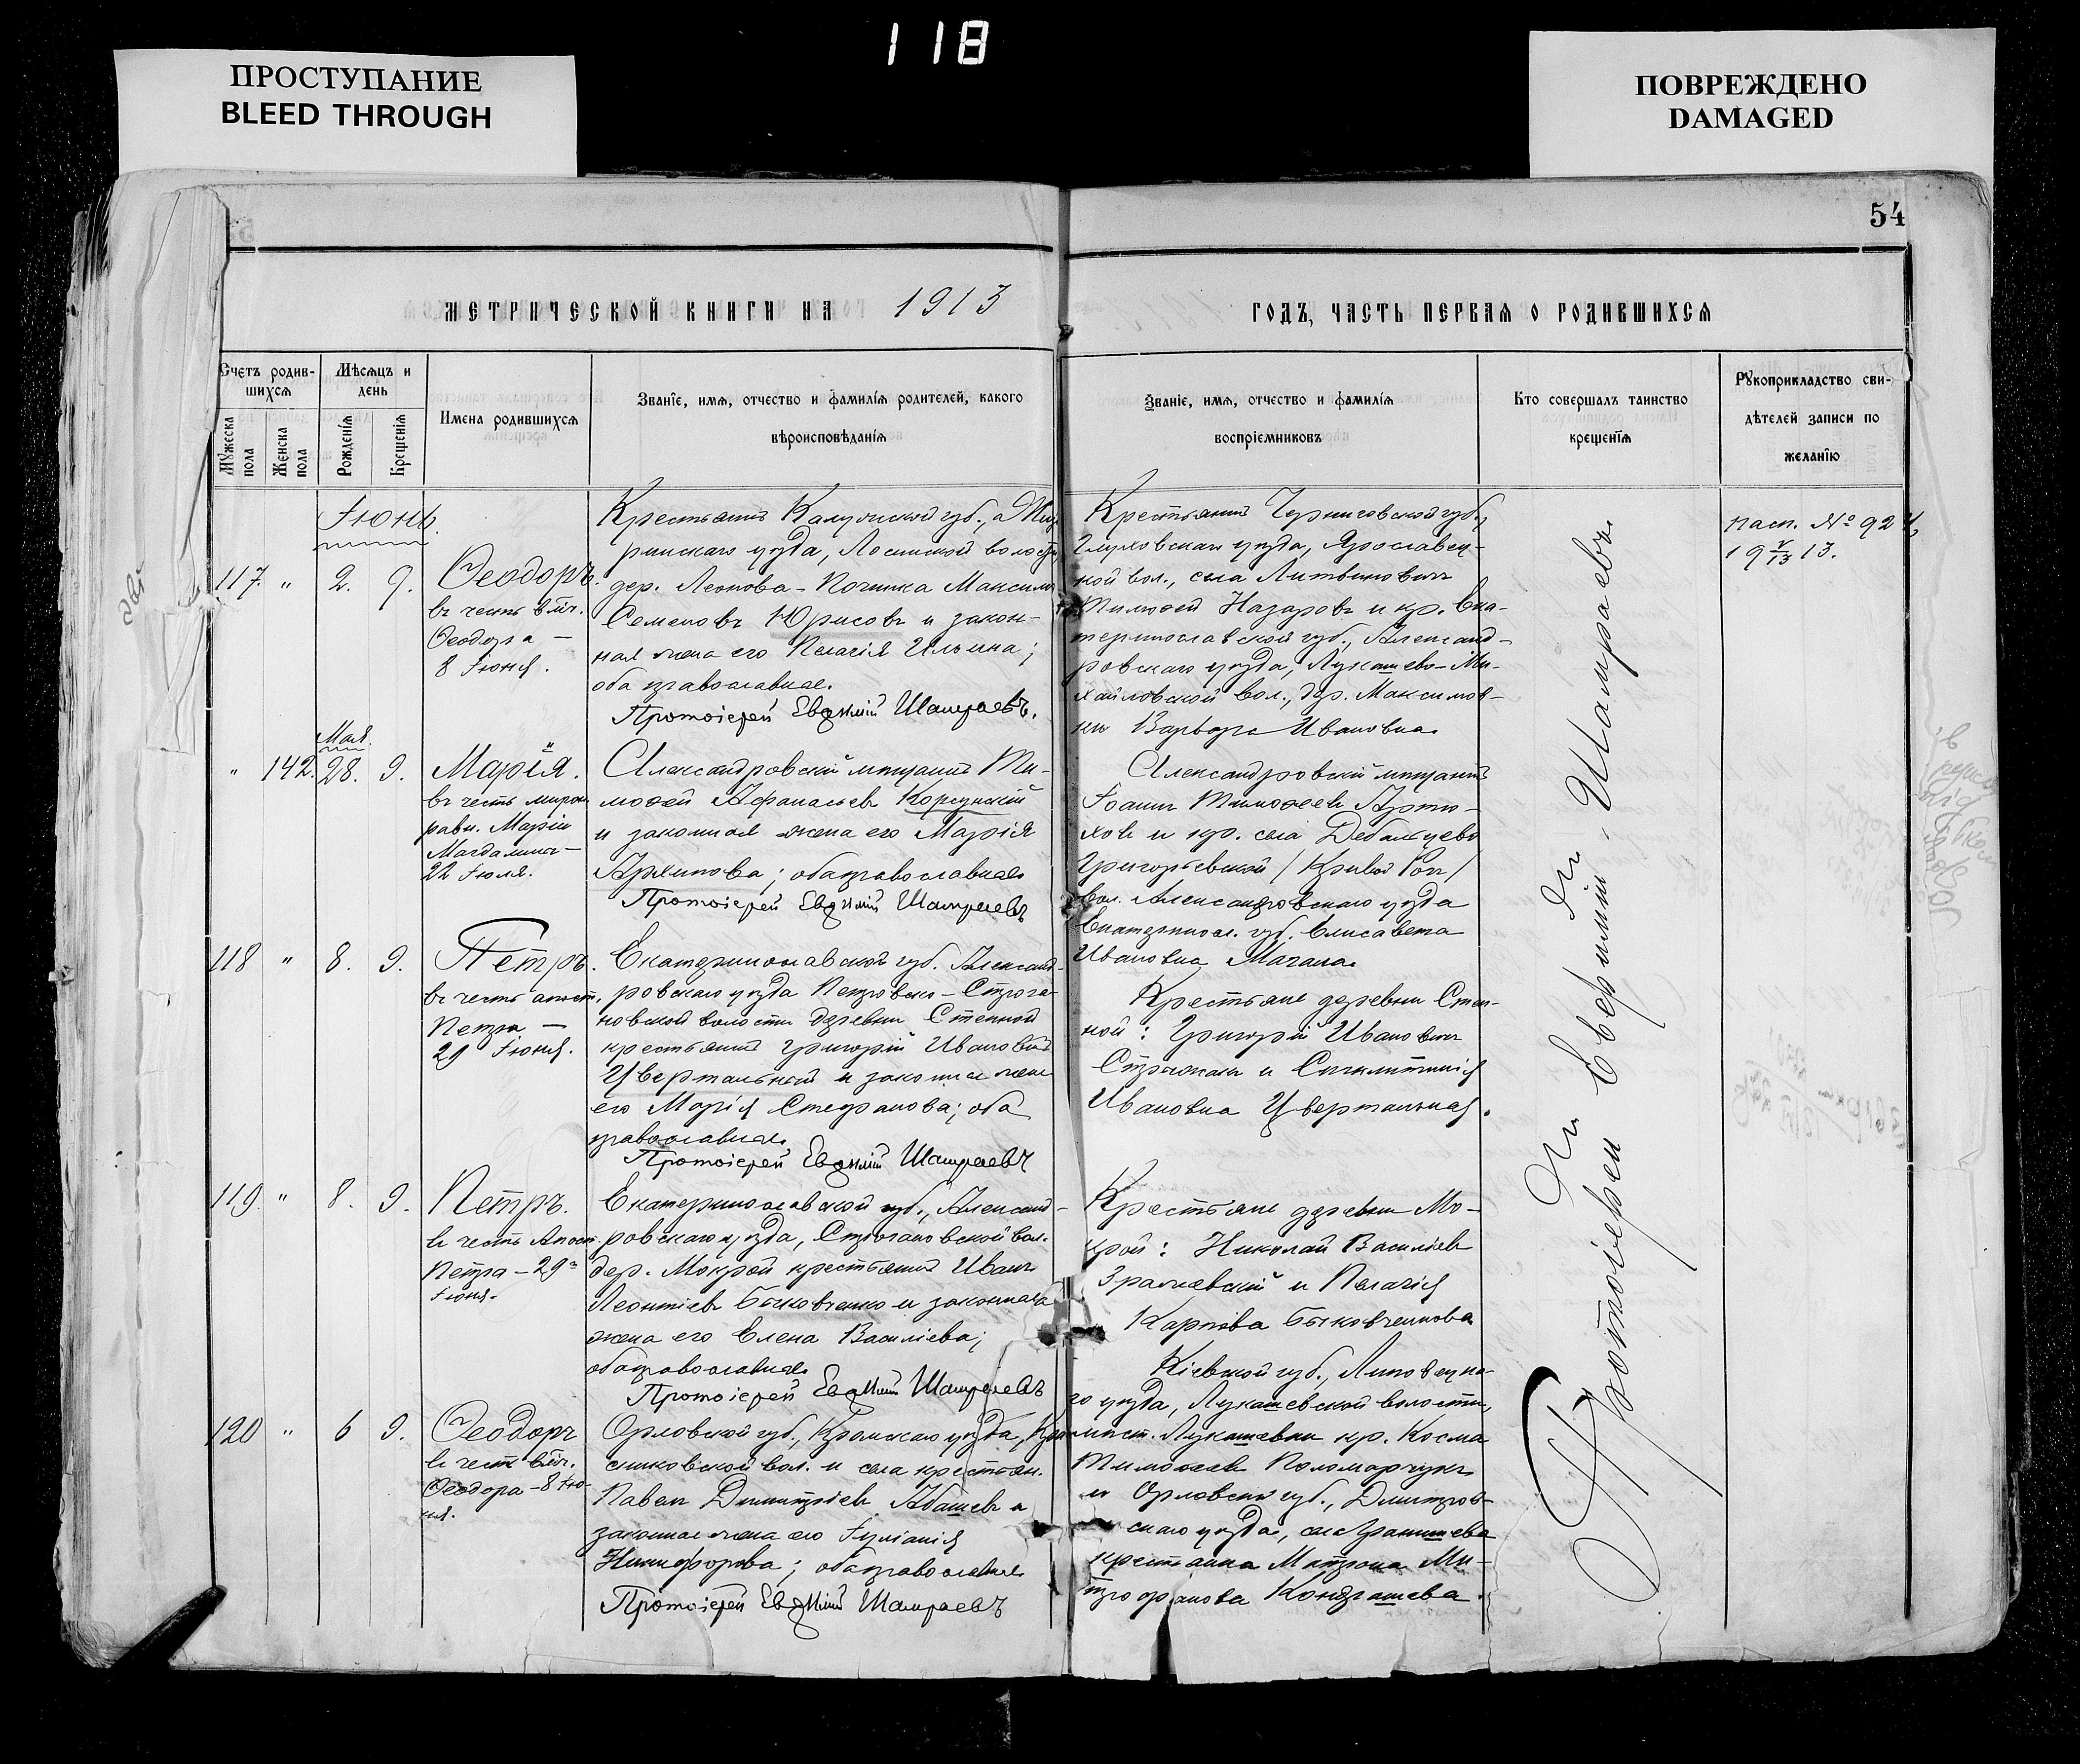 118
ПРОСТУПАНИЕ
BLEED THROUGH
ПОВРЕЖДЕНО
DAMAGED
54
МЕТРИЧЕСКОЙ КНИГИ НА 1913
ГОДЪ, ЧАСТЬ ПЕРВАЯ О РОДИВШИХСЯ
Счетъ родив-
шихся
Мужеска
пола
Женска
пола
Мѣсяцъ и
день
Рожденія
Крещенія
Имена родившихся
Званіе, имя, отчество и фамилія родителей, какого
вѣроисповѣданія
Званіе, имя, отчество и фамилія
воспріемниковъ
Кто совершалъ таинство
крещенія
Рукоприкладство сви-
дѣтелей записи по
желанію
Іюнь.
117. " 2. 9.
Ѳеодоръ.
въ честь влмч.
Ѳеодора —
8 Іюня.
Крестьянинъ Калужской губ.,
уѣзда, Лосинской волости,
дер. Леонова-Починка Максимъ
Семеновъ Юрисовъ и закон-
ная жена его Пелагія Ильина;
оба православные.
Протоіерей Евѳимій Шамраевъ.
Крестьянинъ Черниговской губ.,
Глуховскаго уѣзда, Ярославец-
кой вол., села Литвиновичъ
Тимоѳей Назаровъ и кр. Ека-
теринославской губ., Александ-
ровскаго уѣзда, Лукашево-Ми-
хайловской вол., дер. Максимов-
ки Варвара Иванова.
пасп. № 92
19 V/13 13.
Мая.
" 142. 28. 9.
Марія.
въ честь мирон.
равн. Маріи
Магдалины —
22 Іюля.
Александровскій мѣщанинъ Ти-
моѳей Аѳанасьевъ Корсунскій
и законная жена его Марія
Архипова; оба православные
Протоіерей Евѳимій Шамраевъ
Александровскій мѣщанинъ
Іоаннъ Тимоѳеевъ
и кр. села Дебальцево
Григорьевской /Кривой Рогъ/
вол. Александровскаго уѣзда
Екатеринос. губ. Елисавета
Ивановна Магала.
118 " 8. 9.
Петръ.
въ честь апост.
Петра —
29 Іюня.
Екатеринославской губ. Александ-
ровскаго уѣзда Петровско-Строга-
новской волости деревни Степной
крестьянинъ Григорій Ивановъ
Цвертальный и законная жена
его Марія Стефанова; оба
православные.
Протоіерей Евѳимій Шамраевъ
Крестьяне деревни Степ-
ной: Григорій Ивановичъ
и Синклитикія
Ивановна Цвертальная.
119. " 8. 9.
Петръ.
въ честь Апост.
Петра — 29го
Іюня.
Екатеринославской губ., Александ-
ровскаго уѣзда, Строгановской вол.
дер. Мокрой крестьянинъ Иванъ
Леонтіевъ Быковченко и законная
жена его Елена Василіева;
оба православные
Протоіерей Евѳимій Шамраевъ
Крестьяне деревни Мо-
крой: Николай Василіевъ
Зражевскій и Пелагія
Карпова Быковченкова
120 " 6 9.
Ѳеодоръ
въ честь влмч.
Ѳеодора — 8 Ію-
ня.
Орловской губ., Кромскаго уѣзда,
вол. и села крестьян.
Павелъ Димитріевъ Абашевъ и
законная жена его Іуліанія
Никифорова; оба православные
Протоіерей Евѳимій Шамраевъ
Кіевской губ., Липовецка-
го уѣзда, Лукашевской волости,
мѣст. Лукашевки кр. Косма
Тимоѳеевъ Поломарчукъ
и Орловской губ., Дмитров-
скаго уѣзда,
крестьянка Матрона Ми-
трофанова Кондрашева.
Протоіерей Евфимій Шамраевъ.